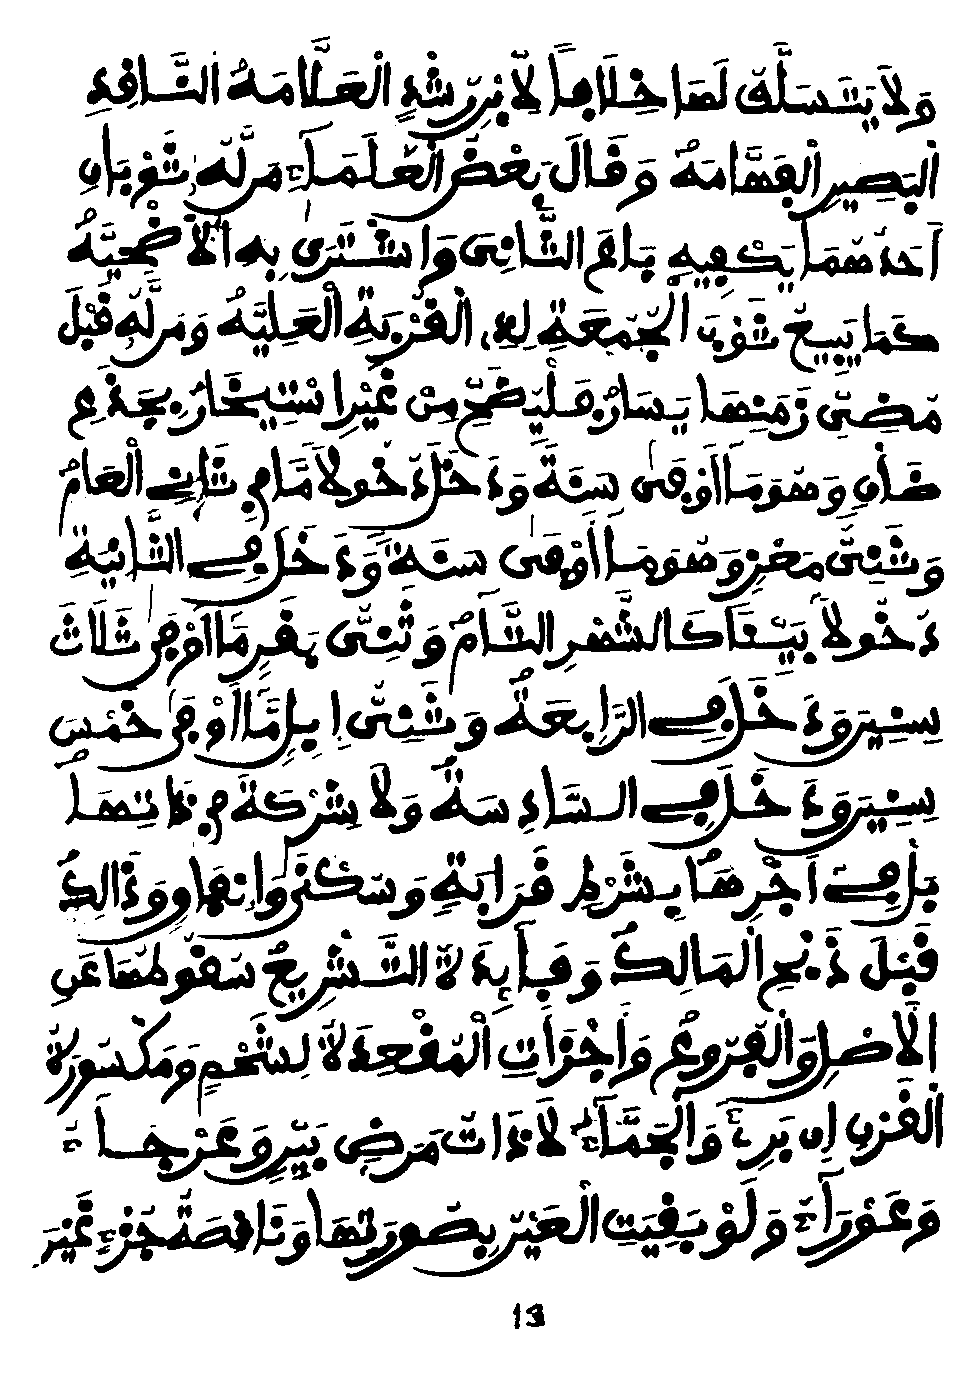 وَلَا يَتَسَلَّفُ لَهَا خِلَافاً لِابْنِ رُشْدٍ الْعَلَّامَةُ النَّاقِدِ
الْبَصِيرِ الْفَهَّامَةُ وَقَالَ بَعْضُ الْعُلَمَاءِ مَن لَّهُ ثَوْبَانِ
أَحَدُهُمَا يَكْفِيهِ بَاعَ الثَّانِيَ وَاشْتَرَى بِهِ الْأُضْحِيَّةُ
كَمَا يَبِيعُ ثَوْبَ الْجُمُعَةِ لِهَذِهِ الْقُرْبَةِ الْعَلِيَّهُ وَمَن لَّهُ قَبْلَ
مُضِيِّ زَمَنِهَا يَسَارٌ فَلْيُضَحِّ مِنْ غَيْرِ اسْتِيخَارٍ بِجَذَعِ
ضَأْنٍ وَهُوَ مَا أَوْفَى سَنَةً وَدَخَلَ دُخُولًا مَّا فِي ثَانِي الْعَامِ
وَثَنِيِّ مَعْزٍ وَهُوَ مَا أَوْفَى سَنَةً وَدَخَلَ فِي الثَّانِيَةِ
دُخُولاً بَيِّناً كَالشَّهْرِ التَّامِ وَثَنِيِّ بَقَرٍ مَا أَوْفَى ثَلَاثَ
سِنِينَ وَدَخَلَ فِي الرَّابِعَةِ وَثَنِيِّ إِبِلٍ مَّا أَوْفَى خَمْسَ
سِنِينَ وَدَخَلَ فِي السَّادِسَةِ وَلَا شِرْكَةَ فِي ذَاتِهَا
بَلْ فِي أَجْرِهَا بِشَرْطِ قَرَابَةٍ وَسُكْنَى وَإِنْفَاقٍ وَذَالِكَ
قَبْلَ ذَبْحِ الْمَالِكِ وَفَائِدَةُ التَّشْرِيعِ سُقُوطُهَا عَنِ
الْأَصْلِ وَالْفُرُوعِ وَأَجْزَأَتِ الْمُقْعَدَةُ لِشَحْمٍ وَمَكْسُورَةُ
الْقَرْنِ إِن بَرِئَ وَالْجَمَّاءُ لَا ذَاتُ مَرَضٍ بَيِّنٍ وَعَرْجَاءَ
وَعَوْرَاءَ وَلَوْ بَقِيَتِ الْعَيْنُ بِصُورَتِهَا وَنَاقِصَةُ جُزْءٍ غَيْرَ
13